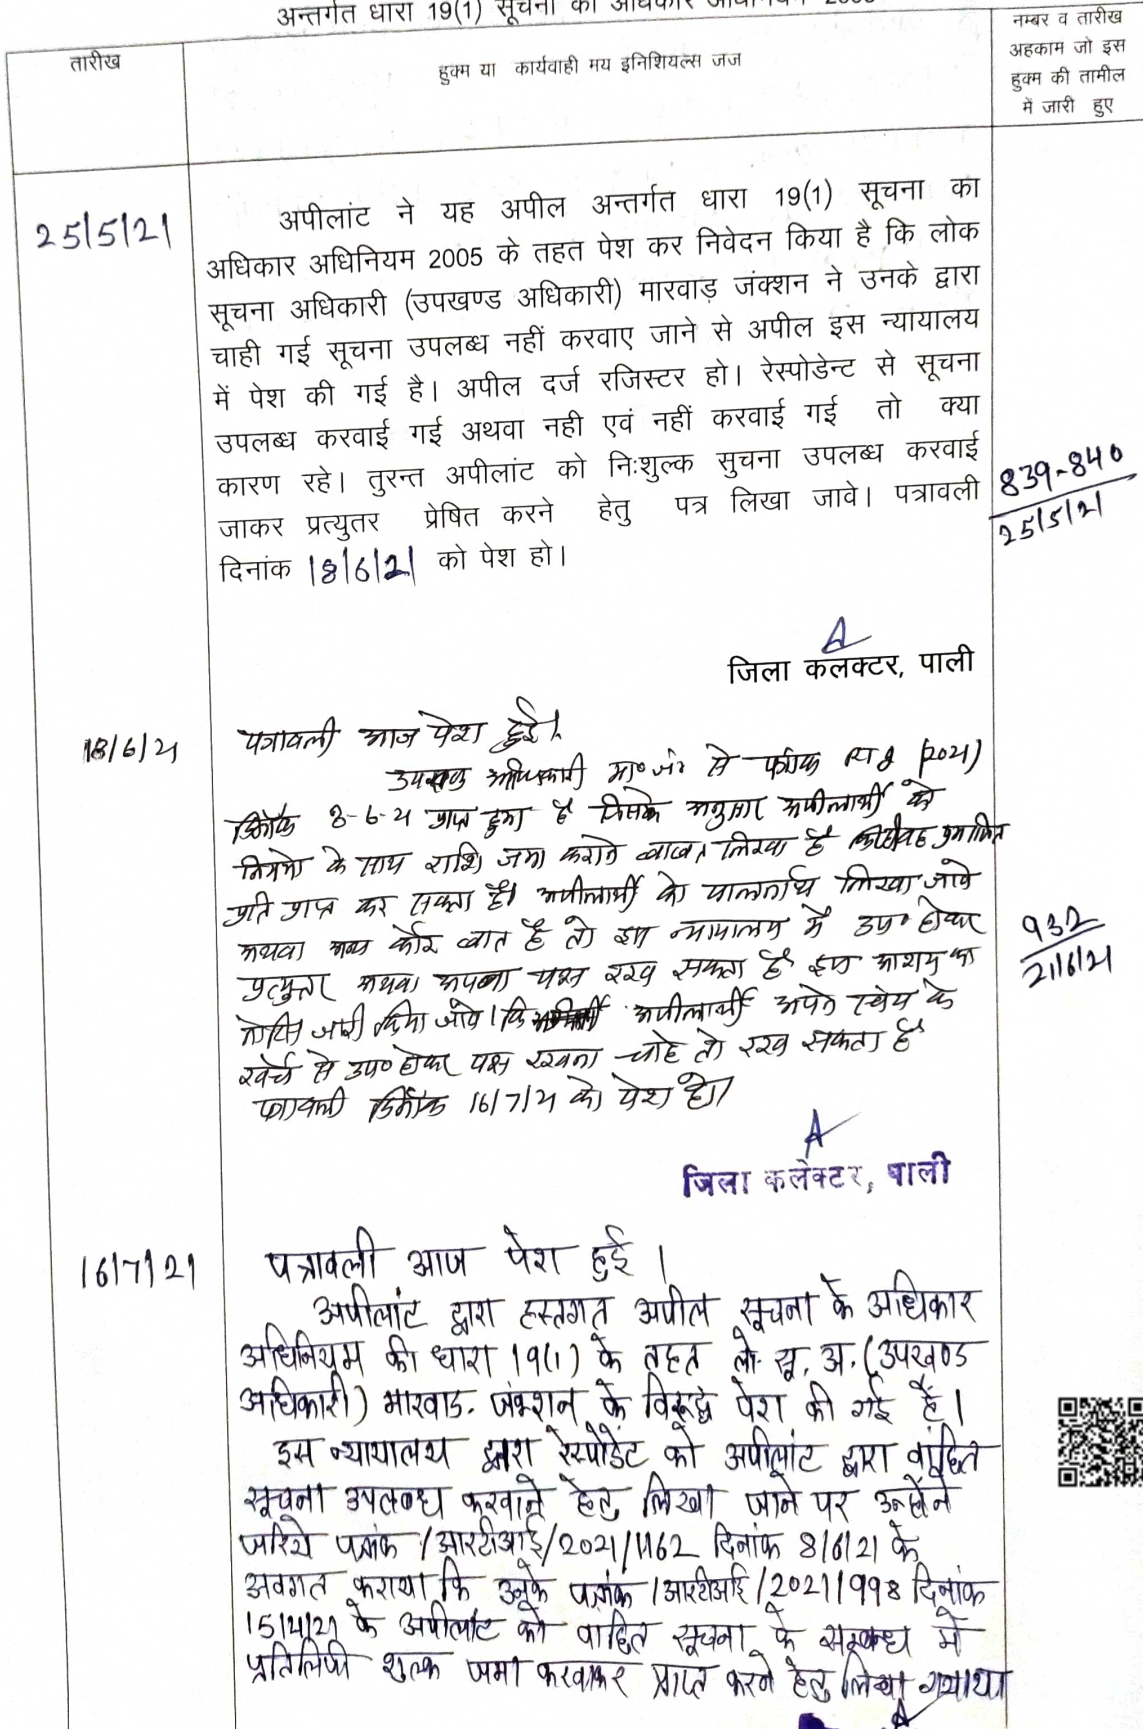 अन्तर्गत धारा 19(1) सूचना का अधिकार अधिनियम 2005
तारीख
हुक्म या कार्यवाही मय इनिशियल्स जज
नम्बर व तारीख
अहकाम जो इस
हुक्म की तामील
में जारी हुए
25/5/21
अपीलांट ने यह अपील अन्तर्गत धारा 19(1) सूचना का
अधिकार अधिनियम 2005 के तहत पेश कर निवेदन किया है कि लोक
सूचना अधिकारी (उपखण्ड अधिकारी) मारवाड़ जंक्शन ने उनके द्वारा
चाही गई सूचना उपलब्ध नहीं करवाए जाने से अपील इस न्यायालय
में पेश की गई है। अपील दर्ज रजिस्टर हो। रेस्पोडेन्ट से सूचना
उपलब्ध करवाई गई अथवा नही एवं नहीं करवाई गई तो क्या
कारण रहे। तुरन्त अपीलांट को निःशुल्क सुचना उपलब्ध करवाई
जाकर प्रत्युतर प्रेषित करने हेतु पत्र लिखा जावे। पत्रावली
दिनांक 18/6/21 को पेश हो।
839-840
25/5/21
जिला कलक्टर, पाली
18/6/21
पत्रावली आज पेश हुई।
उपखण्ड अधिकारी मा० जं० से (2021)
दिनांक 8-6-21 प्राप्त हुआ है जिसके अनुसार अपीलार्थी को
नियमों के साथ राशि जमा कराने बाबत लिखा है प्रमाणित
प्रति प्राप्त कर सकता है। अपीलार्थी को पालनार्थ लिखा जावे
अथवा अन्य कोई बात है तो इस न्यायालय में उप० होकर
प्रत्युत्तर अथवा अपना पक्ष रख सकता है इस आशय का
नोटिस जारी किया जावे। कि अपीलार्थी अपने स्वयं के
खर्चे से उप० होकर पक्ष रखना चाहे तो रख सकता है
पत्रावली दिनांक 16/7/21 को पेश हो।
932
21/6/21
जिला कलेक्टर, पाली
16/7/21
पत्रावली आज पेश हुई।
अपीलांट द्वारा हस्तगत अपील सूचना के अधिकार
अधिनियम की धारा 19(1) के तहत लो. सू. अ. (उपखण्ड
अधिकारी) मारवाड. जंक्शन के विरूद्ध पेश की गई है।
इस न्यायालय द्वारा रेस्पोडेंट को अपीलांट द्वारा वांछित
सूचना उपलब्ध करवाने हेतु लिखा जाने पर उन्होंने
जरिये पत्रांक /आरटीआई/2021/1162 दिनांक 8/6/21 के
अवगत कराया कि उनके पत्रांक /आरटीआई/2021/998 दिनांक
15/4/21 के अपीलांट को वांछित सूचना के सम्बन्ध में
प्रतिलिपी शुल्क जमा करवाकर प्राप्त करने हेतु लिखा गया था